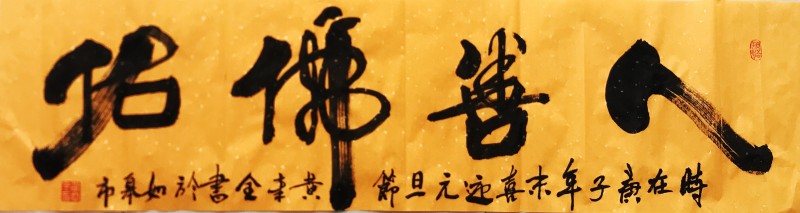 人善佛佑
時在庚子年末喜迎元旦節 黄来金書於如皋市